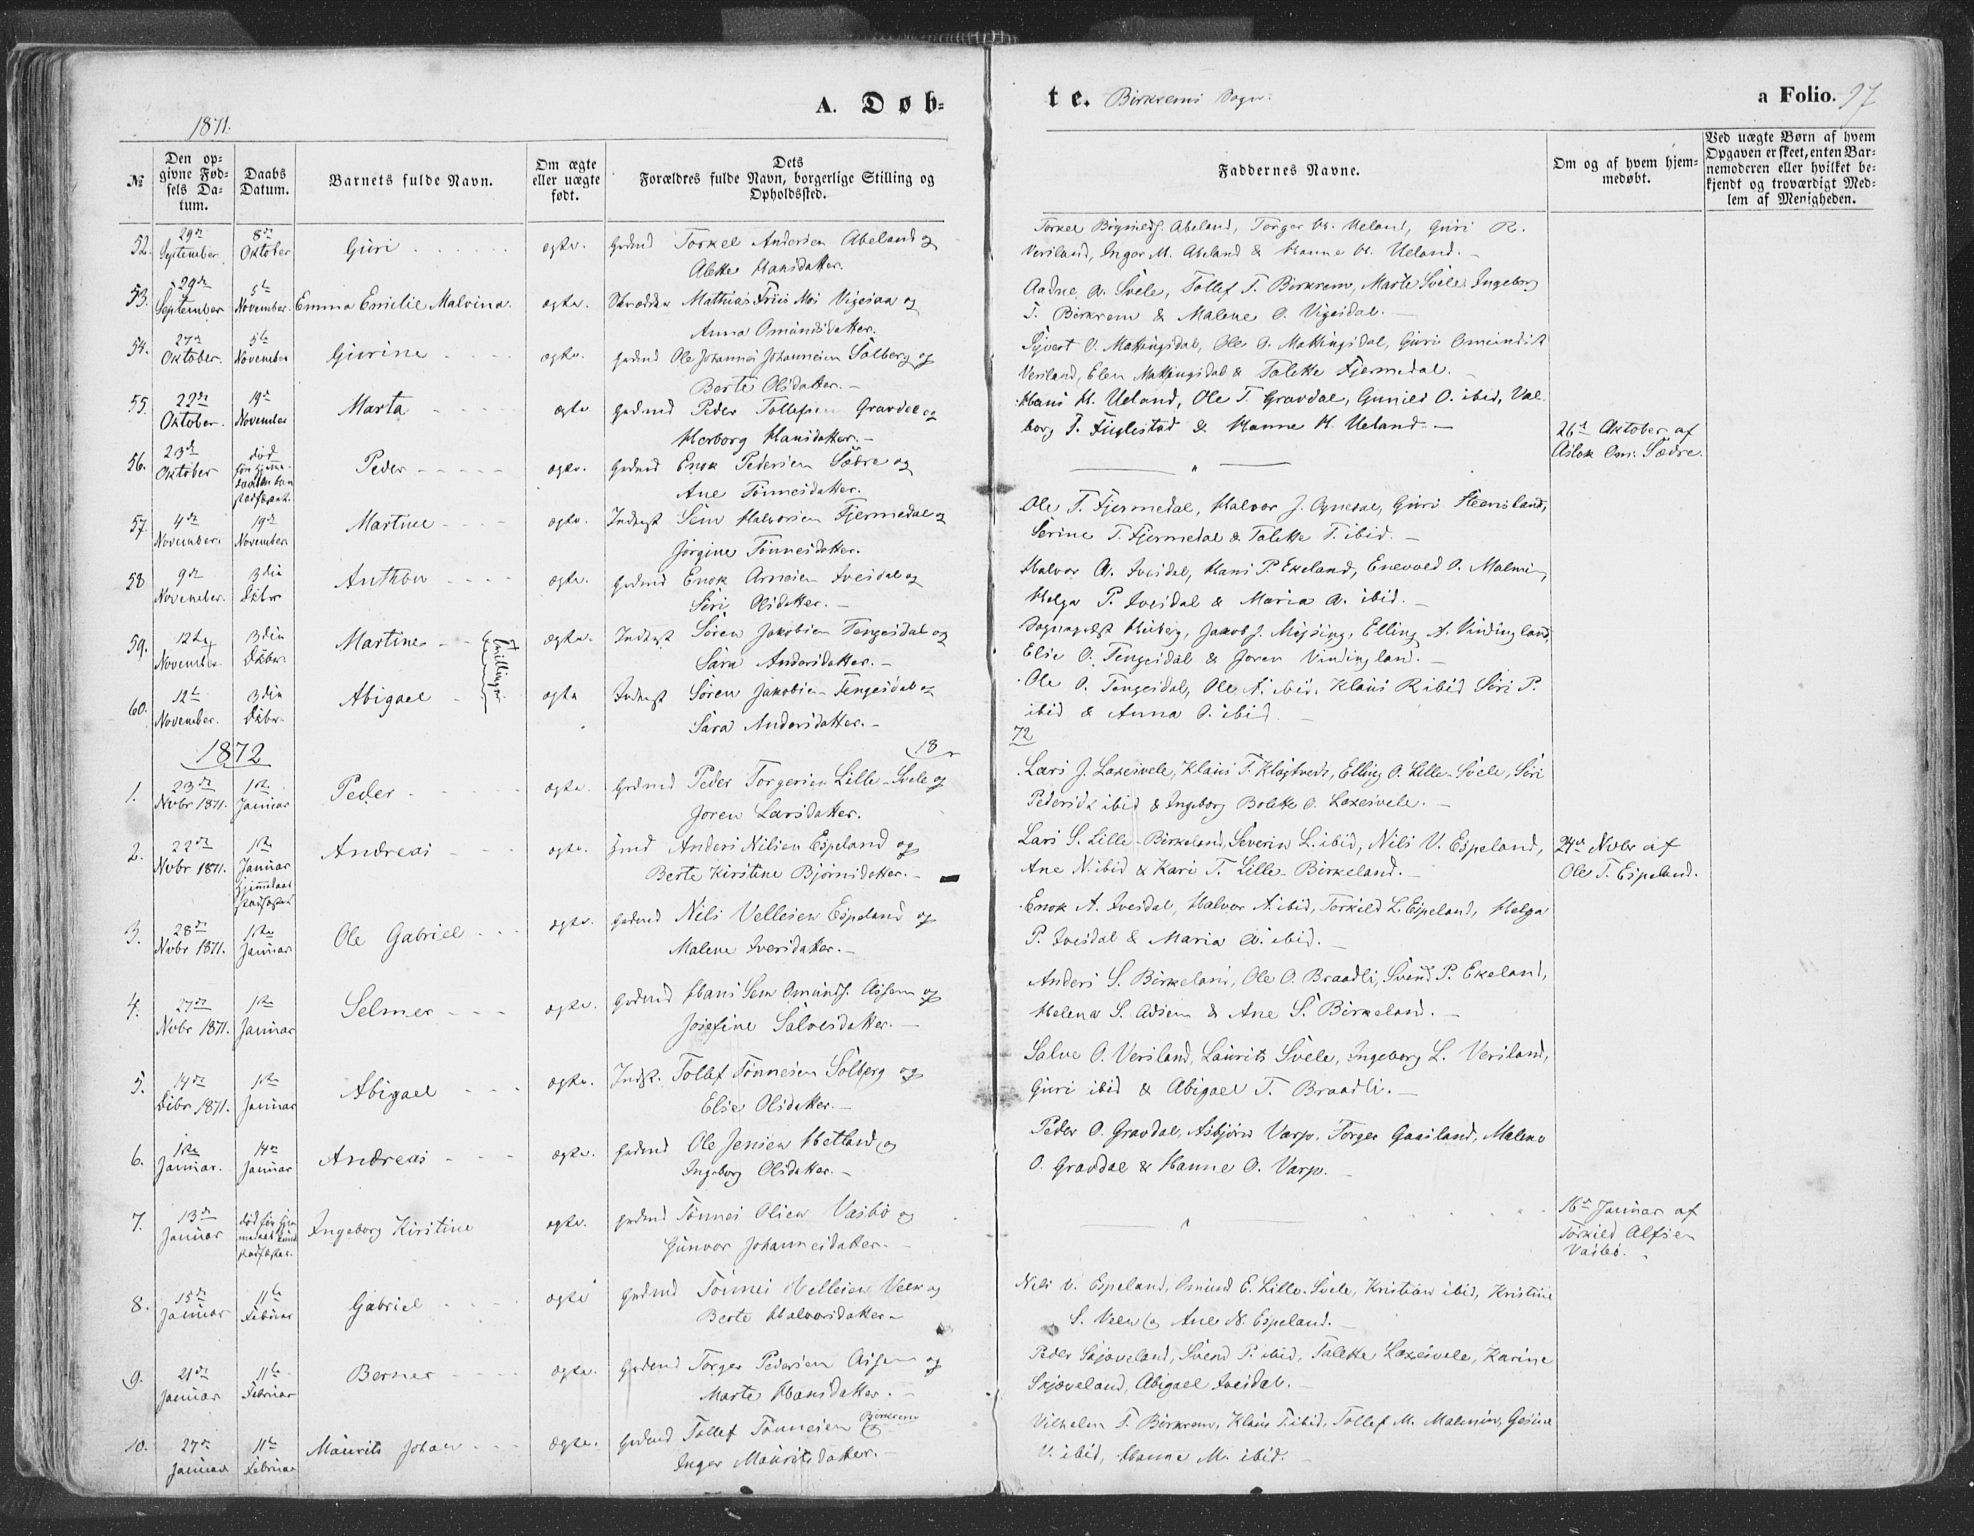 A. Døb-
te. Birkrems Sogn.
a Folio. 97
1871.
№
Den opgivne Fødsels Datum.
Daabs Datum.
Barnets fulde Navn.
Om ægte eller uægte født.
Dets Forældres fulde Navn, borgerlige Stilling og Opholdssted.
Faddernes Navne.
Om og af hvem hjemmedøbt.
Ved uægte Børn af hvem Opgaven er skeet, enten Barnemoderen eller hvilket bekjendt og troværdigt Medlem af Menigheden.
52. 29de September 8de Oktober Guri ægte. Grdmd Torkel Andersen Abeland og
Alette Hansdatter.
Torger M. Ueland, Guri R.
Versland, Inger M. Abeland & Hanne M. Ueland.
53. 29de September 5te November Emma Emelie Malvina ægte. Skrædder Mathias Friis Moi Vigesaa og
Anna Omundsdatter.
Aadne A. Svele, Tollef T. Birkrem, Marte Svele, Ingeborg
T. Birkrem & Malene O. Vigesdal.
54. 27de Oktober. 5te November Gurine ægte. Grdmd Ole Johannes Johannesen Solberg og
Berte Olsdatter.
Sivert O. Mattingsdal, Ole O. Mattingsdal, Guri Omundsd.
Versland, Elen Mattingsdal & Talette Fjermedal.
55. 22de Oktober. 19de November Marta ægte Grdmd Peder Tollefsen Gravdal og
Herborg Hansdatter.
Hans H. Ueland, Ole T. Gravdal, Gunild O. ibid, Val-
borg T. Fuglestad & Hanne H. Ueland.
56. 23de Oktober død før Peder ægte. Grdmd Enok Pedersen Sædre og
Ane Tønnesdatter.
26de Oktober af
Aslak Om. Sædre.
57. 4de November. 19de November Martine ægte. Inderst Sem Halvorsen Fjermedal og
Jørgine Tønnesdatter.
Ole T. Fjermedal, Halvor J. Ognedal, Guri Steensland,
Serine T. Fjermedal & Talette T. ibid.
58 9de November. 3die Dcbr Anthon ægte. Grdmd Enok Arnesen Ivesdal og
Siri Olsdatter.
Halvor A. Ivesdal, Hans P. Ekeland, Enevold O. Malmin,
Helga P. Ivesdal & Maria A. ibid.
59. 12te November 3die Dcbr Martine Tvillinger ægte. Inderst Søren Jakobsen Tengesdal og
Sara Andersdatter.
Sognepræst Heiberg, Jakob J. Møgsing, Elling A. Vindingland,
Elie O. Tengesdal & Joren Vindingland.
60. 12te November. 3die Dcbr. Abigael ægte Inderst Søren Jakobsen Tengesdal og
Sara Andersdatter.
Ole O. Tengesdal, Ole A. ibid, Klaus R ibid Siri P.
ibid & Anna O. ibid.
1872
18
72
1. 23de Nvbr 1871. 1ste Januar Peder ægte. Grdmd Peder Torgersen Lille-Svele og
Joren Larsdatter.
Lars J. Laxesvele, Klaus T. Klugtvedt, Elling O. Lille-Svele, Siri
Pedersdt ibid & Ingeborg Bolette O. Laxesvele.
2. 22de Nvbr 1871. 1ste Januar hjemmedøbt stadfæstet Andreas ægte. Anders Nilsen Espeland og
Berte Kirstine Bjørnsdatter.
Lars S. Lille-Birkeland, Severin L. ibid, Nils V. Espeland,
Ane N. ibid & Kari T. Lille-Birkeland.
24de Nvbr af
Ole T. Espeland.
3. 28de Nvbr 1871. 1ste Januar Ole Gabriel ægte. Grdmd Nils Vellesen Espeland og
Malene Iversdatter.
Enok A. Ivesdal, Halvor A. ibid, Torkild L. Espeland, Helga
P. Ivesdal & Maria A. ibid.
4. 27de Nvbr 1871. 1ste Januar Selmer ægte. Grdmd Hans Sem Omunds. Assem og
Josefine Salvesdatter.
Anders S. Birkeland, Ole O. Braadli, Svend P. Ekeland,
Helena S. Adsem & Ane S. Birkeland.
5. 14de Dcbr 1871. 1ste Januar Abigael ægte. Indst. Tollef Tønnesen Solberg og
Elie Olsdatter.
Salve O. Versland, Laurits Svele, Ingeborg L. Versland,
Guri ibid & Abigael T. Braadli.
6. 1ste Januar. 14de Januar Andreas ægte. Grdmd Ole Jensen Hetland og
Ingeborg Olsdatter.
Peder O. Gravdal, Asbjørn Varp, Torger Gaasland, Malene
O. Gravdal & Hanne O. Varp.
7. 13de Januar Ingeborg Kirstine ægte. Grdmd Tønnes Olsen Vasbø og
Gunvor Johannesdatter.
16de Januar af
Torkild Alfsen
Vasbø.
8. 15de Januar 11te Februar Gabriel ægte Grdmd Tønnes Vellesen Veen og
Berte Halvorsdatter
Nils V. Espeland, Omund E. Lille-Svele, Kristian ibid, Kristine
S. Veen og Ane N. Espeland.
9. 21de Januar 11te Februar Berner ægte. Grdmd Torger Pedersen Assem og
Marte Hansdatter.
Peder Skjæveland, Svend P. ibid, Talette Laxesvele, Karine
Skjæveland, Abigael Ivesdal.
10. 27de Januar 11te Februar Maurits Johan ægte. Grdmd Tollef Tønnesen Birkrem og
Inger Mauritsdatter.
Vilhelm T. Birkrem, Klaus T. ibid, Tollef M. Malmin, Gesine
V. ibid, Hanne M. ibid.